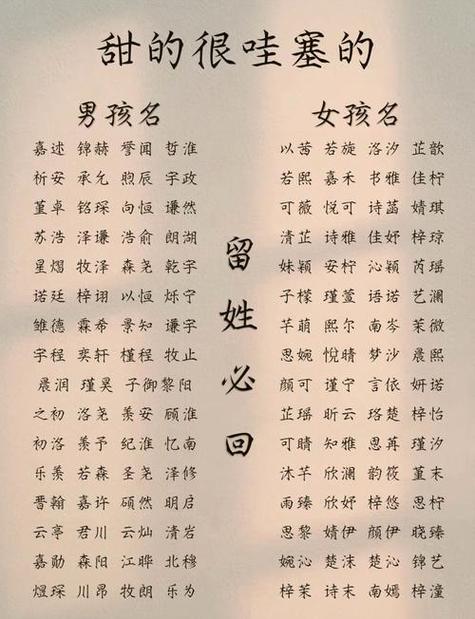 甜的很哇塞的
男孩名
嘉述 锦赫 誉闻 哲淮
析安 承允 煦辰 宇政
堇卓 铭琛 向恒 谦然
苏浩 泽谦 浩俞 朗湖
星熠 牧泽 森尧 乾宇
诺廷 梓诩 以恒 烁宁
雏德 霖希 景知 谦宇
宇程 奕轩 槿程 牧止
晨润 瑾昊 子御黎阳
之初 洛尧 羡安 顾淮
初洛 羡予 纪淮 忆南
乐羡 若森 圣尧 泽修
晋翰 嘉许 硕然 明启
云亭 君川 云灿 清岩
嘉勋 森阳 江晔 北穆
煜琛 川昂 牧朗 乐为
留姓必回
女孩名
以茜 若旋 洛汐 芷歆
若熙 嘉禾 书雅 佳柠
可薇 悦可 诗菡 婧琪
清芷 诗雅 佳妤 梓琼
妹颖 安柠 沁颖 芮瑶
子檬 瑾萱 语诺 艺澜
芊萌 熙尔 南岑 茉微
思婉 悦晴 梦沙 晨熙
颜可 瑾宁 言依 妍诺
芷瑶 昕云 珞楚 梓怡
可晴 知雅 恩苒 瑾汐
沐芊 欣澜 韵筱 堇末
雨臻 欣妤 梓悠 思柠
思黎 婧伊 颜伊 晓臻
婉沁 楚沫 楚沁 锦艺
梓茉 诗末 南嫣 梓潼